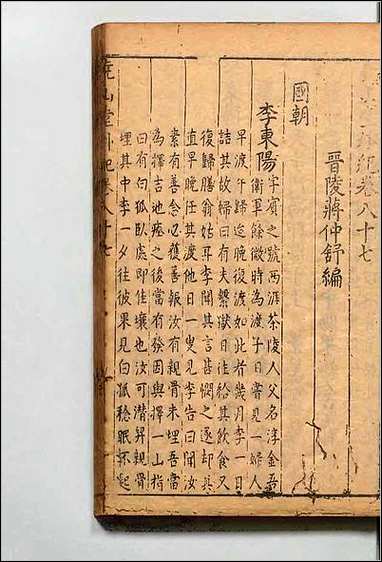 外紀卷八十七
晋陵蔣仲舒編
國朝
李東陽 字賓之號西涯茶陵人父名淳金吾
衛軍餘微時為渡子日嘗見一婦人
早渡午歸迨晚復渡如此者幾月李一日
詰其故婦曰有夫繫獄日往給其飲食又
復歸膳翁姑耳李聞其言甚憫之遂却其
值早晚任其渡他日一叟見李告曰聞汝
素有善念必獲善報汝有親骨未埋吾當
為擇吉地瘞之後當有發因與擇一山指
曰有白狐臥處即佳壤也汝可潛舁親骨
埋其中李一夕往彼果見白狐稔眠不起
堯山堂外紀卷八十七